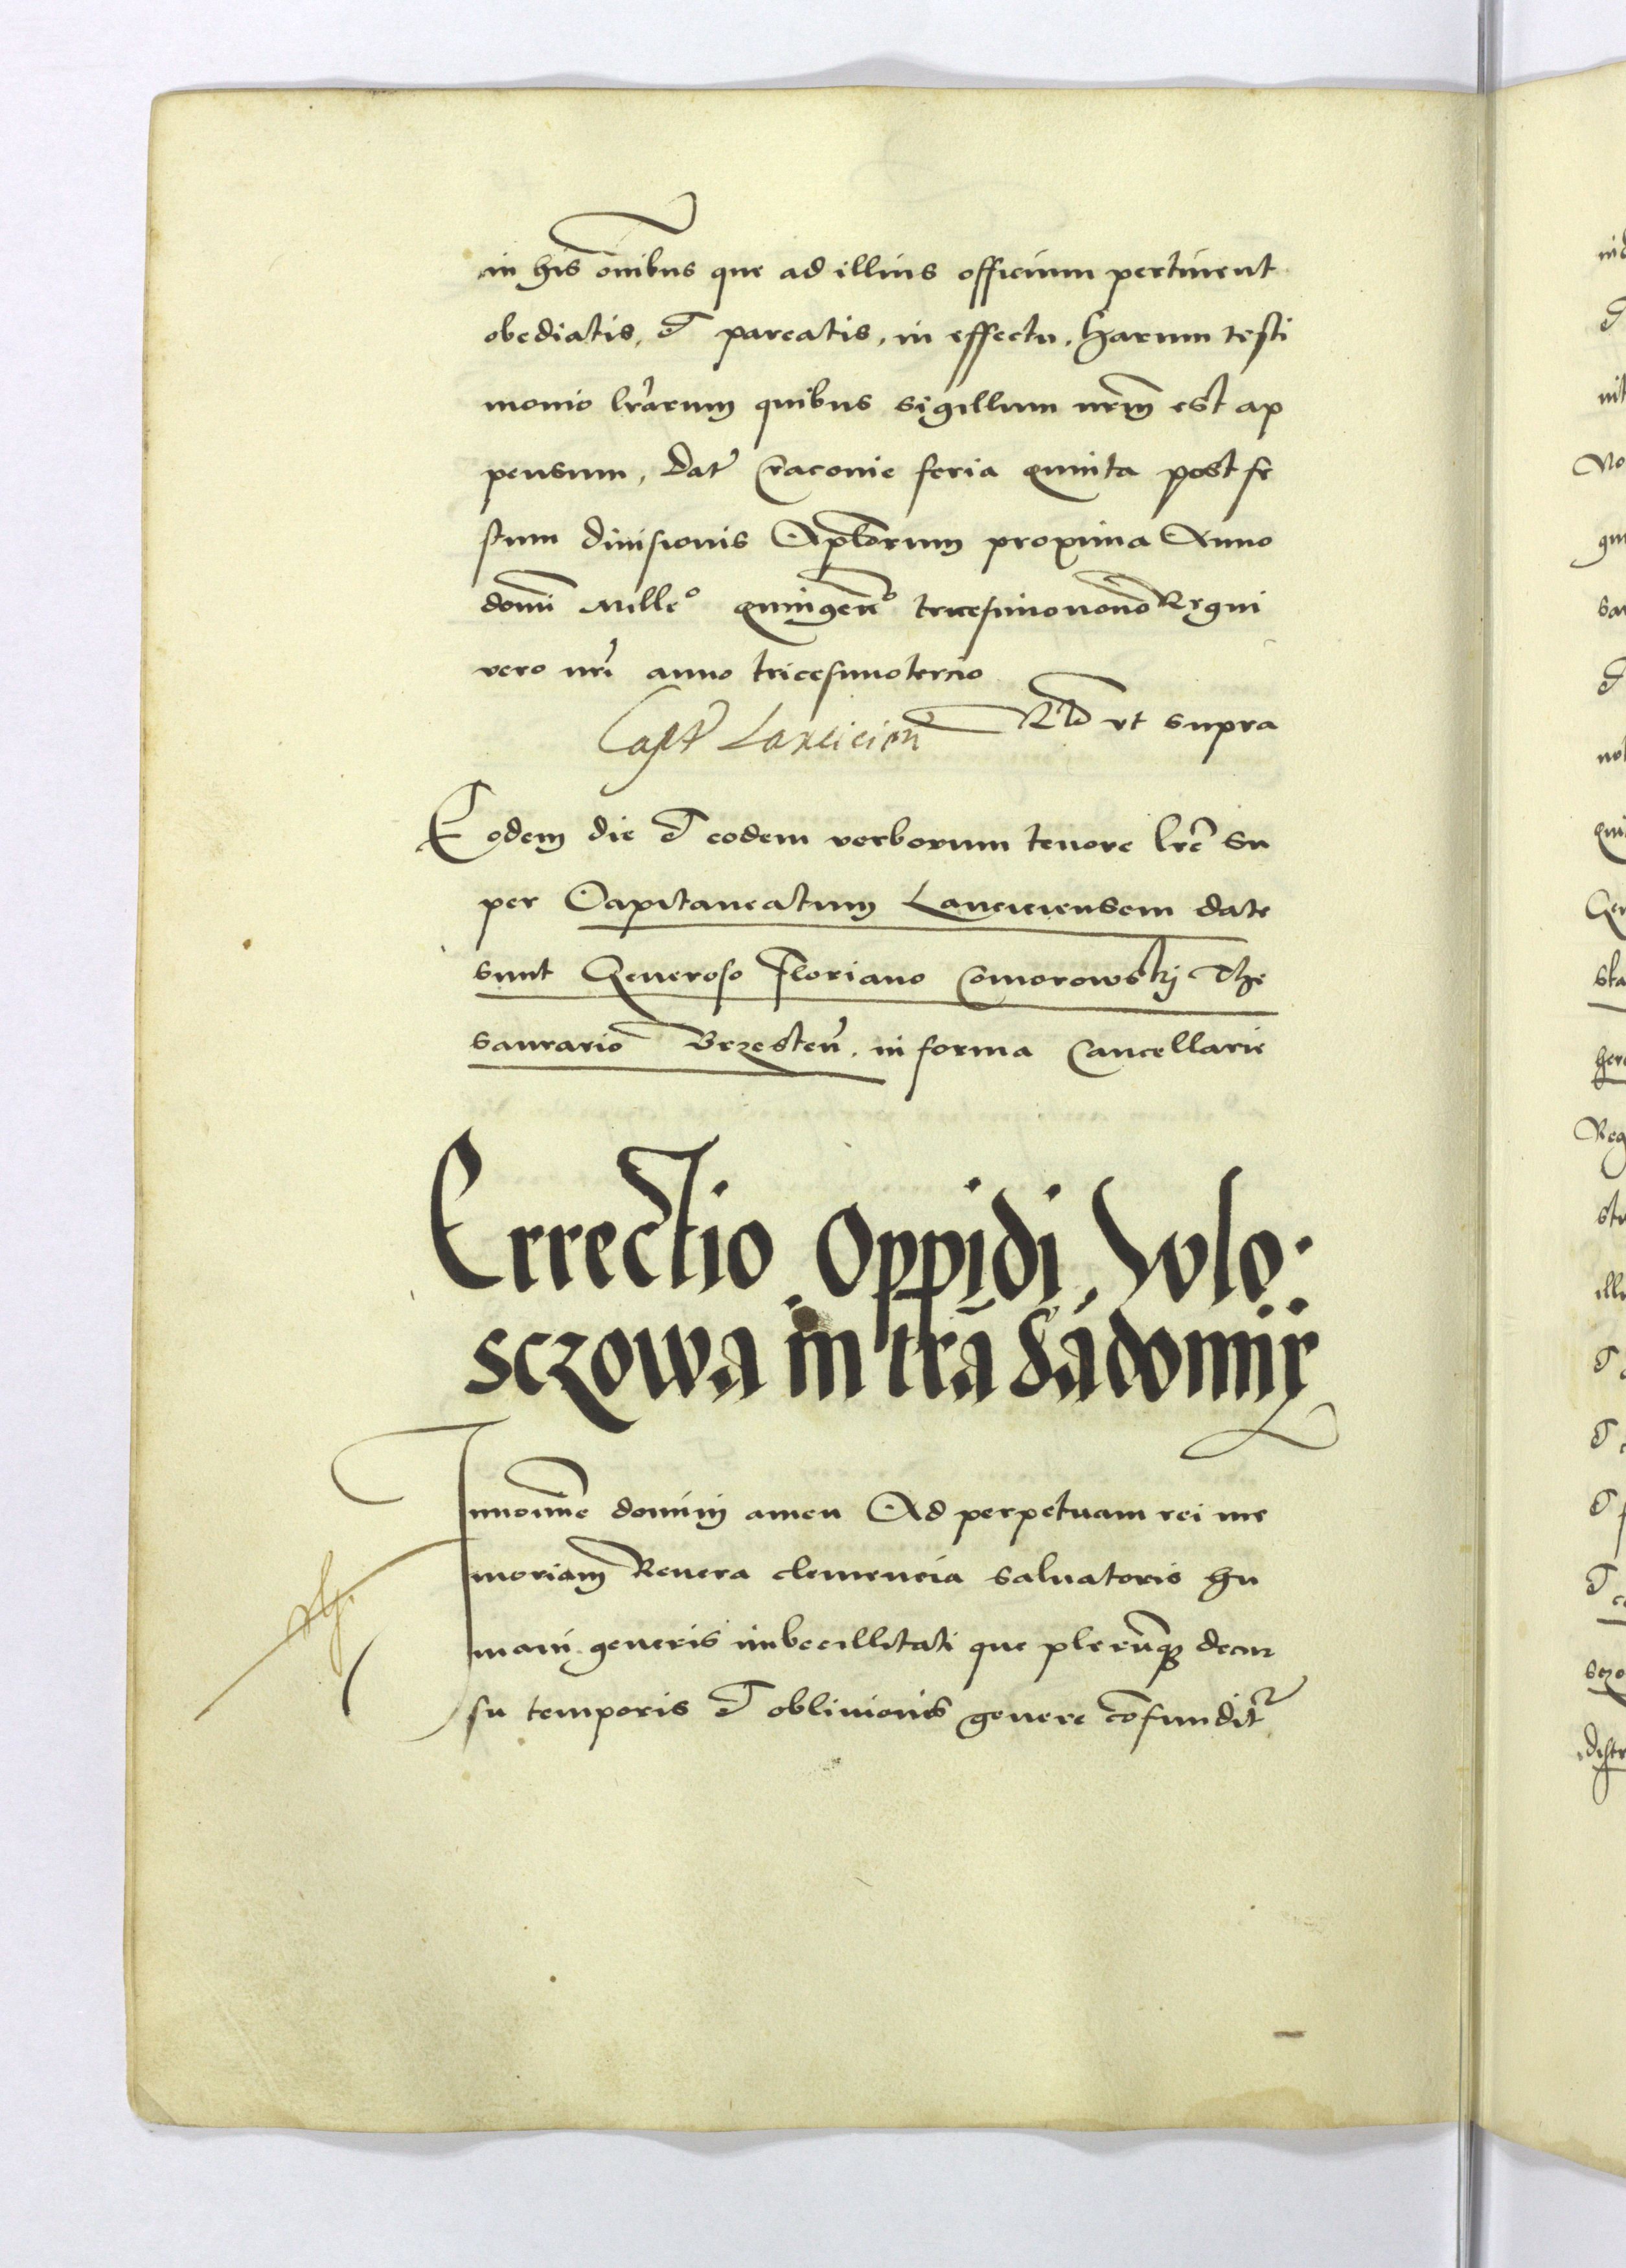 in his om̄ibus que ad illius officium pertinent
obediatis, et pareatis, in effectu, harum testi
monio lr̄arum quibus sigillum nr̄m est ap
pensum, Dat̄ Cracouie feria quinta post fe
stum diuisionis Ap̄lorum proxima Anno
domī Mille° quingen̄° tricesimonono Regni
vero nr̄i anno tricesimotercio
Rl̄o vt supra
Capt̄ Lancicien̄
Eodem die et eodem verborum tenore lr̄e su
per Capitaneatum Lanciciensem date
sunt Generoso Floriano Comorowskij The
saurario Brzesten̄. in forma Cancellarie
Errectio Oppidi Wlo
sczowa in tr̄a Sādomir̄
Innomīe dominj amen Ad perpetuam rei me
moriam Reuera clemencia saluatoris hu
mani generis imbecillitati que plerūq3 decur
su temporis et obliuionis genere cōfundit̄